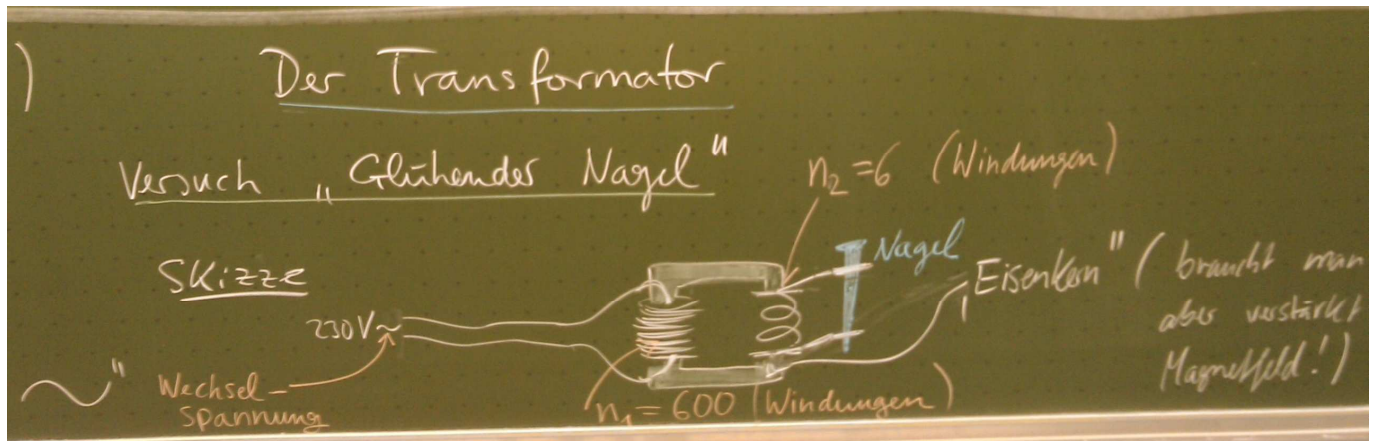 )
Der Transformator
Versuch „Glühender Nagel"
n₂ = 6 (Windungen)
Skizze
Nagel
230V~
Eisenkern" (braucht man
aber verstärkt
Magnetfeld!)
~"
Wechsel-
spannung
n₁ = 600 (Windungen)